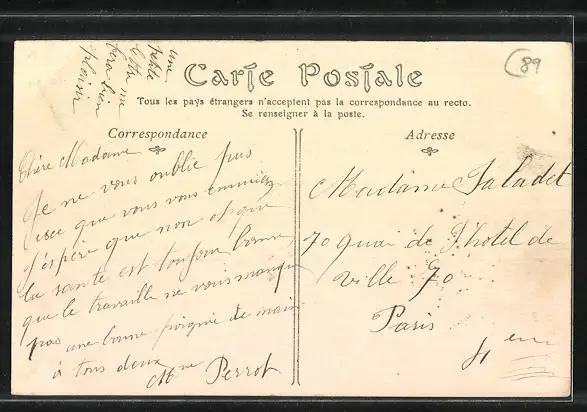 une
petite
lettre me
fera bien
plaisir
89
Carte Postale
Tous les pays étrangers n'acceptent pas la correspondance au recto.
Se renseigner à la poste.
Correspondance
Adresse
Chère Madame
Je ne vous oublie pas
que vous vous ennuiez
j'espère que non et que
la santé est toujour bonne
que le travaille ne vous manque
pas une bonne poignié de main
à tous deux
Mme Perrot
Madame Saladet
70 quai de l'hotel de
ville 70
Paris
4 eme